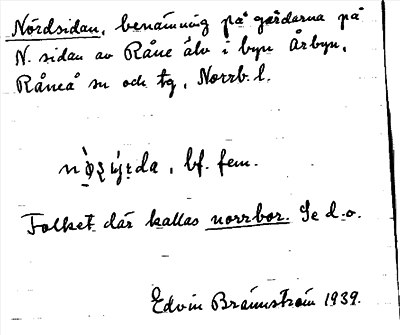 Nördsidan, benämning på gårdarna på
N. sidan av Råne älv i byn Årbyn,
Råneå sn och tg, Norrb. l.
bf. fem.
Folket där kallas norrbor. Se d.o.
Edvin Brännström 1939.